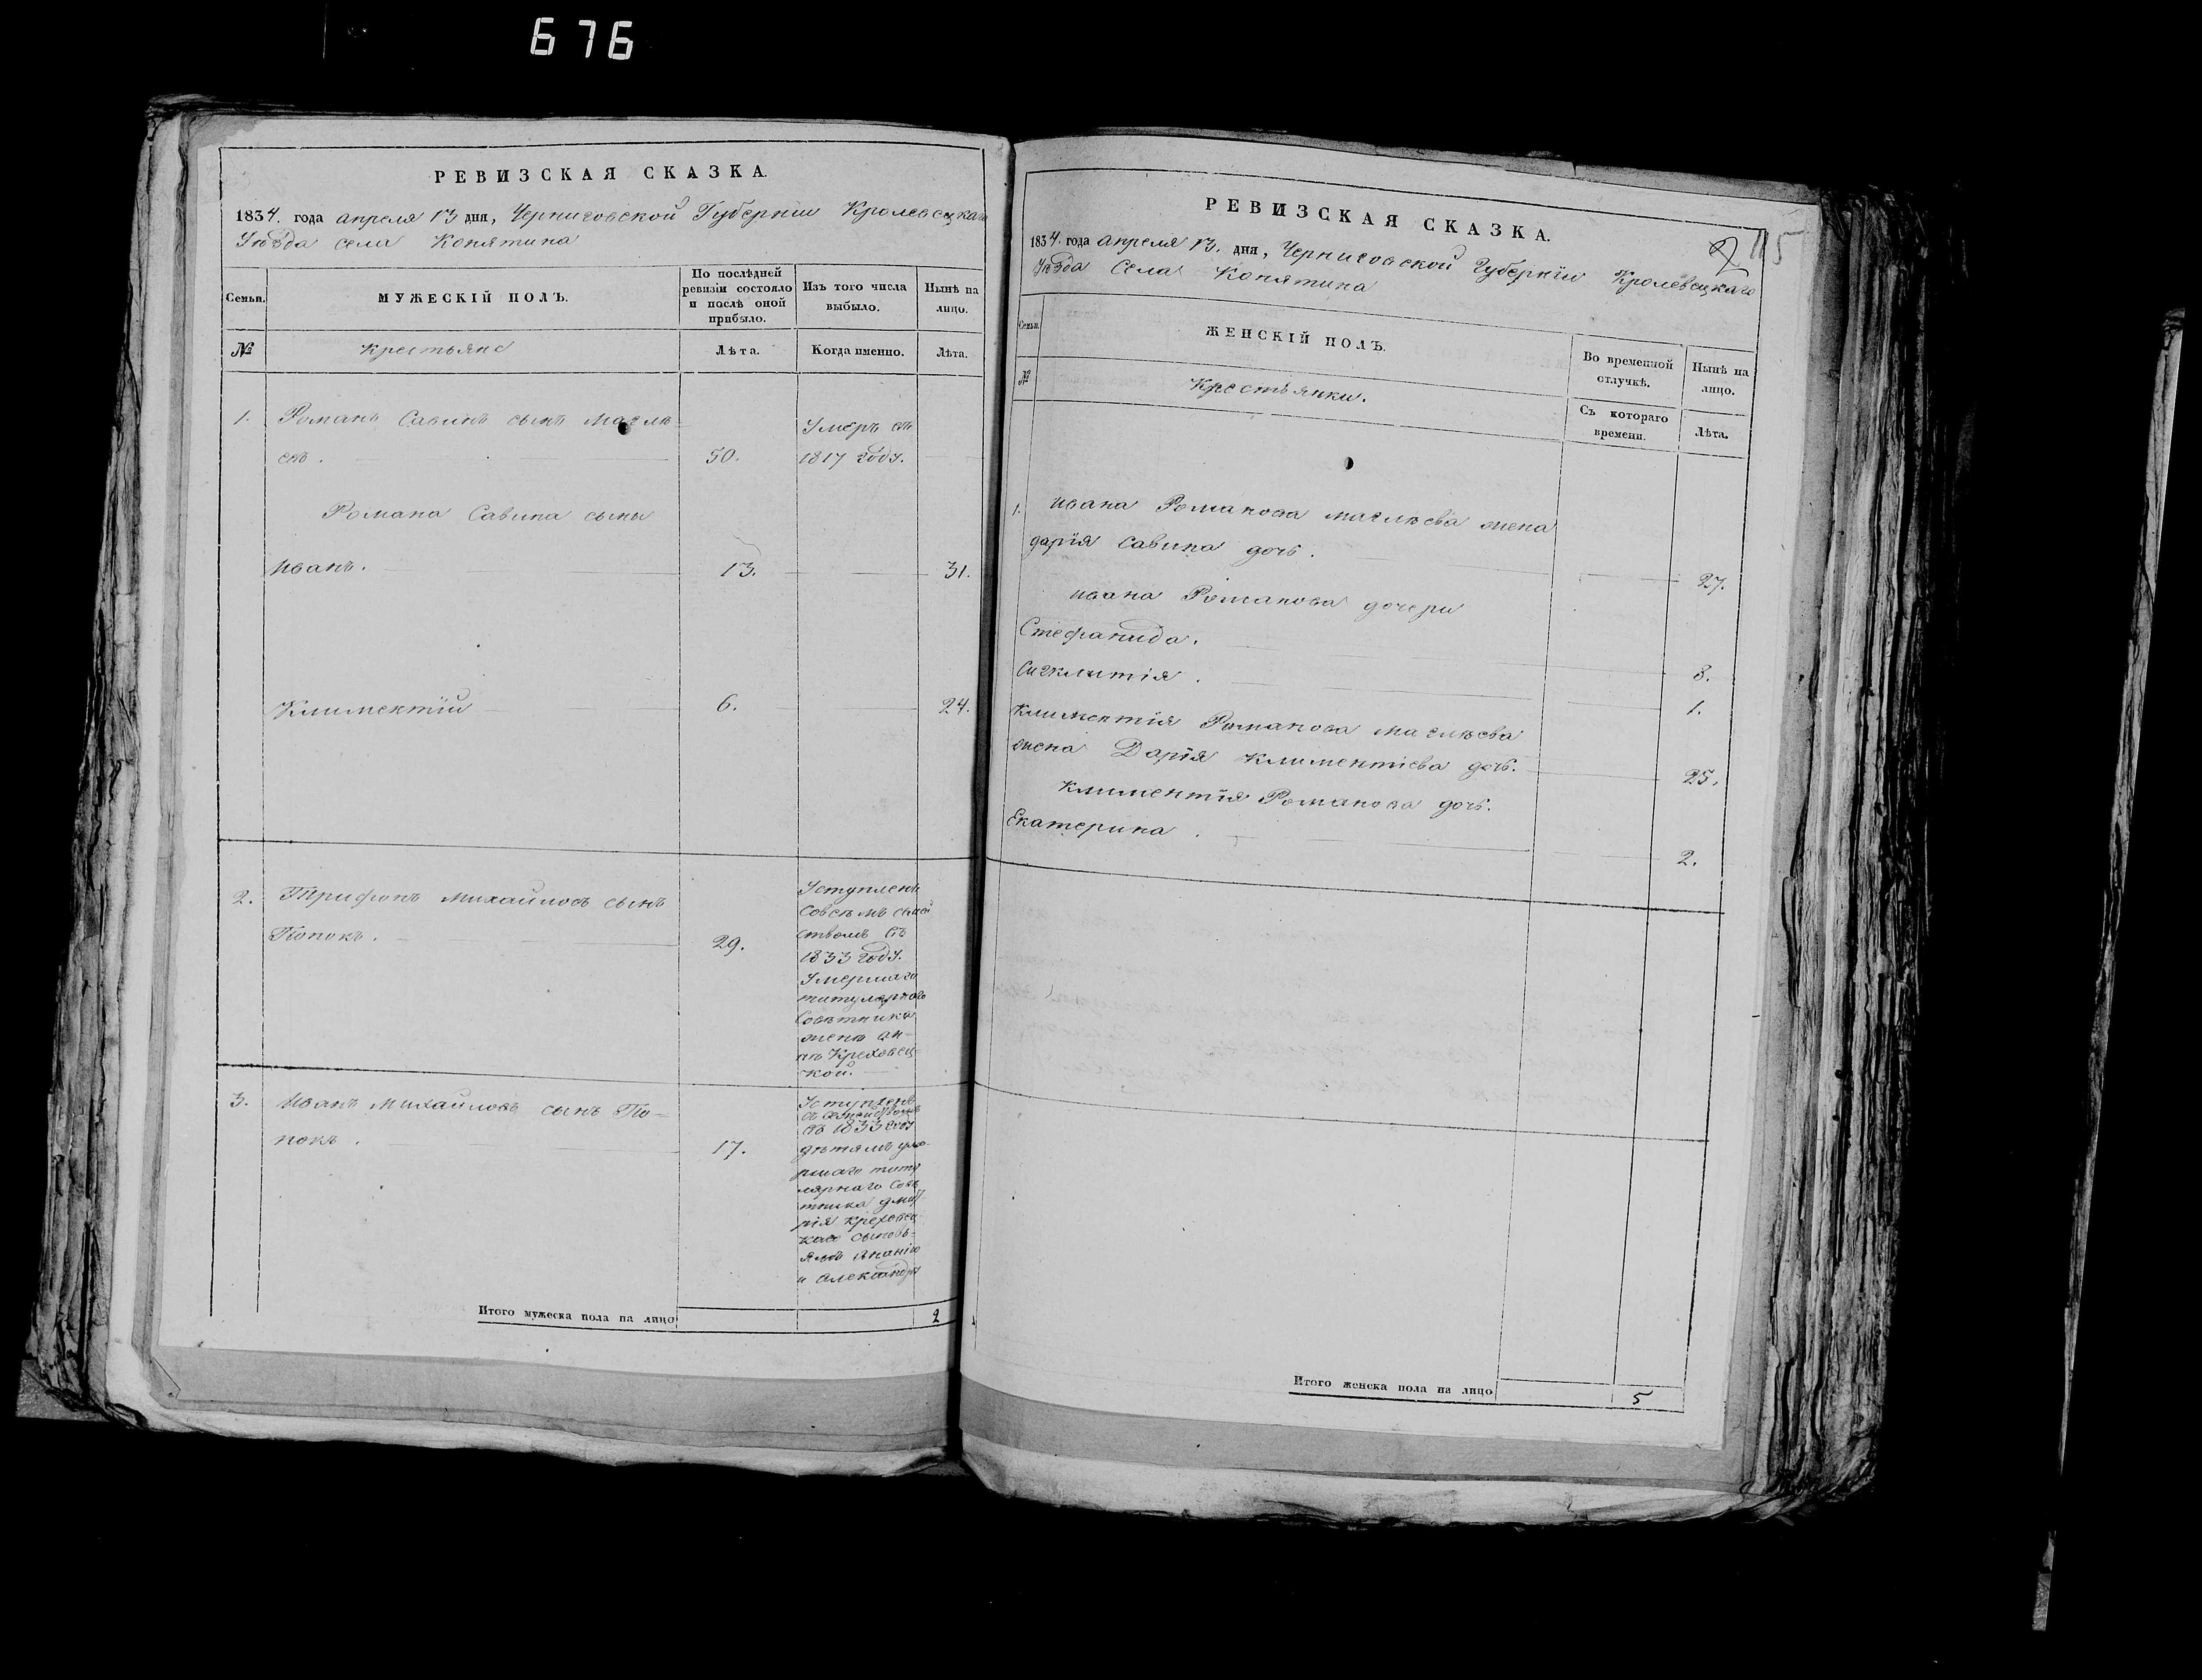 676
РЕВИЗСКАЯ СКАЗКА.
1834. года апреля 13 дня, Черниговской Губернїи Кролевецкаго
Уѣзда села Конятина
Семьи.
МУЖЕСКІЙ ПОЛЪ.
По послѣдней
ревизіи состояло
и послѣ оной
прибыло.
Изъ того числа
выбыло.
Нынѣ на
лицо.
№
Крестьяне
Лѣта.
Когда именно.
Лѣта.
1. Романъ Савинъ сынъ
50.
Умеръ въ
1817 году.
Романа Савина сыны
Иванъ. 13. 31.
Климентїй 6. 24.
2. Трифонъ Михайловъ сынъ
Попокъ. 29.
Уступленъ
совсемъ семей
ствомъ въ
1833 году.
Умершаго
титулярнаго
Советника
жене Ан-
не Креховец-
кой.
3. Иванъ Михайловъ сынъ По-
покъ. 17.
Уступленъ
съ семействомъ
въ 1833 году
детямъ уме-
ршаго титу
лярнаго Сове
тника Дмит-
рія Креховец
каго сыновь-
ямъ Ананію
и Александру
Итого мужеска пола на лицо 2
РЕВИЗСКАЯ СКАЗКА.
2 115
1834. года апреля 13. дня, Черниговской Губернїи Кролевецкаго
Уѣзда Села Конятина
Семьи.
ЖЕНСКІЙ ПОЛЪ.
Во временной
отлучкѣ.
Нынѣ на
лицо.
№
Крестьянки.
Съ котораго
времени.
Лѣта.
1. Ивана Романова жена
Дарїя Савина дочь. 27.
Ивана Романова дочери
Стефанида. 8.
Сигклитія. 1.
Климентїя Романова
жена Дарїя Климентіева дочь. 25.
Климентїя Романова дочь.
Екатерина. 2.
Итого женска пола на лицо 5